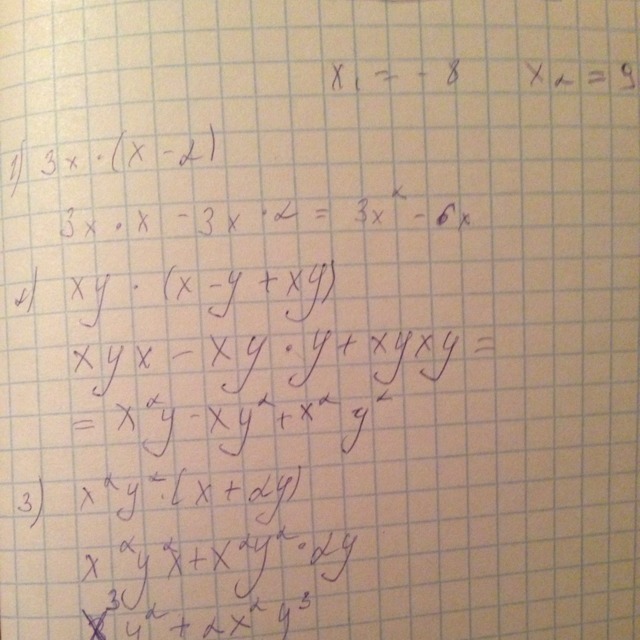 x₁ = -8 x₂ = 9
1) 3x · (x - 2)
3x · x - 3x · 2 = 3x² - 6x
2) xy · (x - y + xy)
xyx - xy · y + xyxy =
= x²y - xy² + x²y²
3) x²y² · (x + 2y)
x²y²x + x²y² · 2y
x³y² + 2x²y³